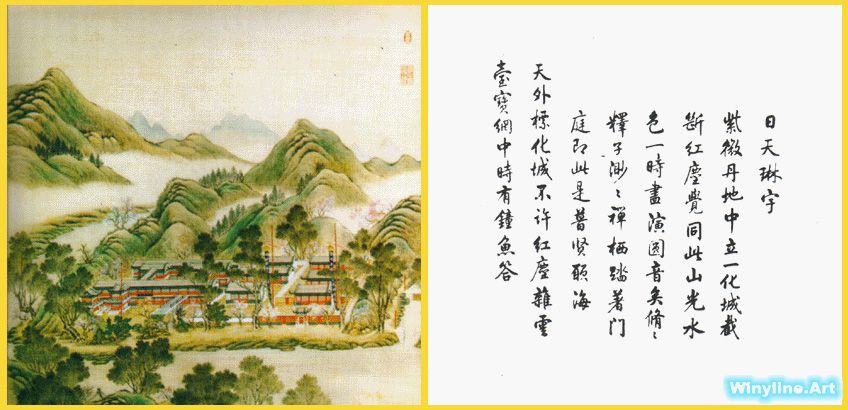 日天琳宇
紫微丹地中立一化城截
斷红塵覺同此山光水
色一時盡演圆音矣脩〻
釋子渺〻禪栖踏著門
庭即此是普贤願海
天外標化城不许红塵雜雲
臺寶網中時有鐘魚答
Winyline.Art